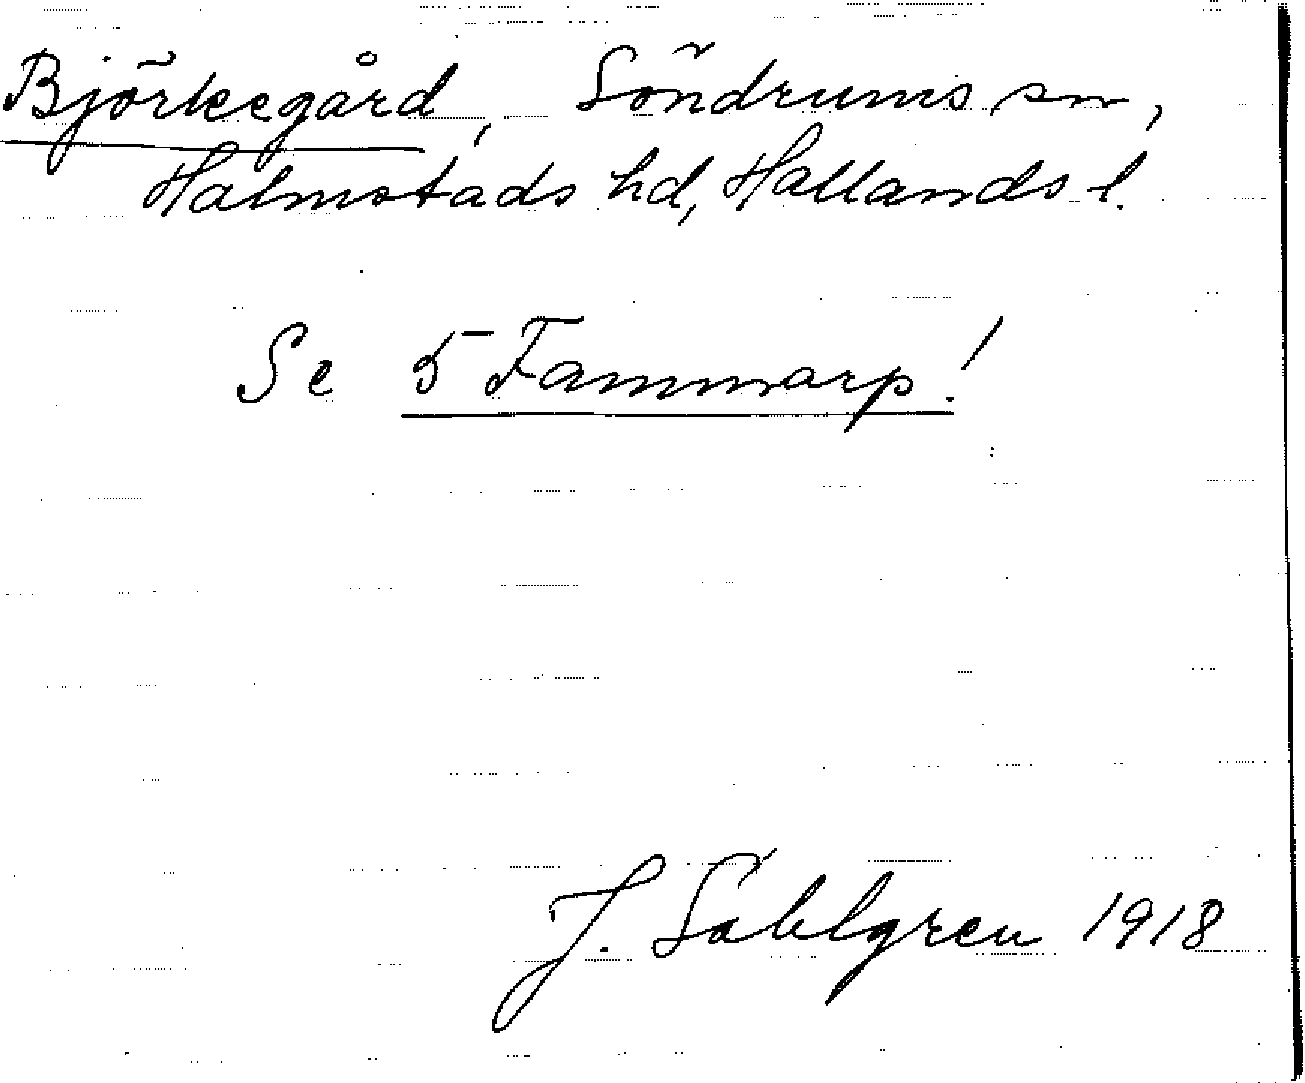 Björkegård, Söndrums sn,
Halmstads hd, Hallands l.
Se 5 Fammarp!
J. Sahlgren 1918